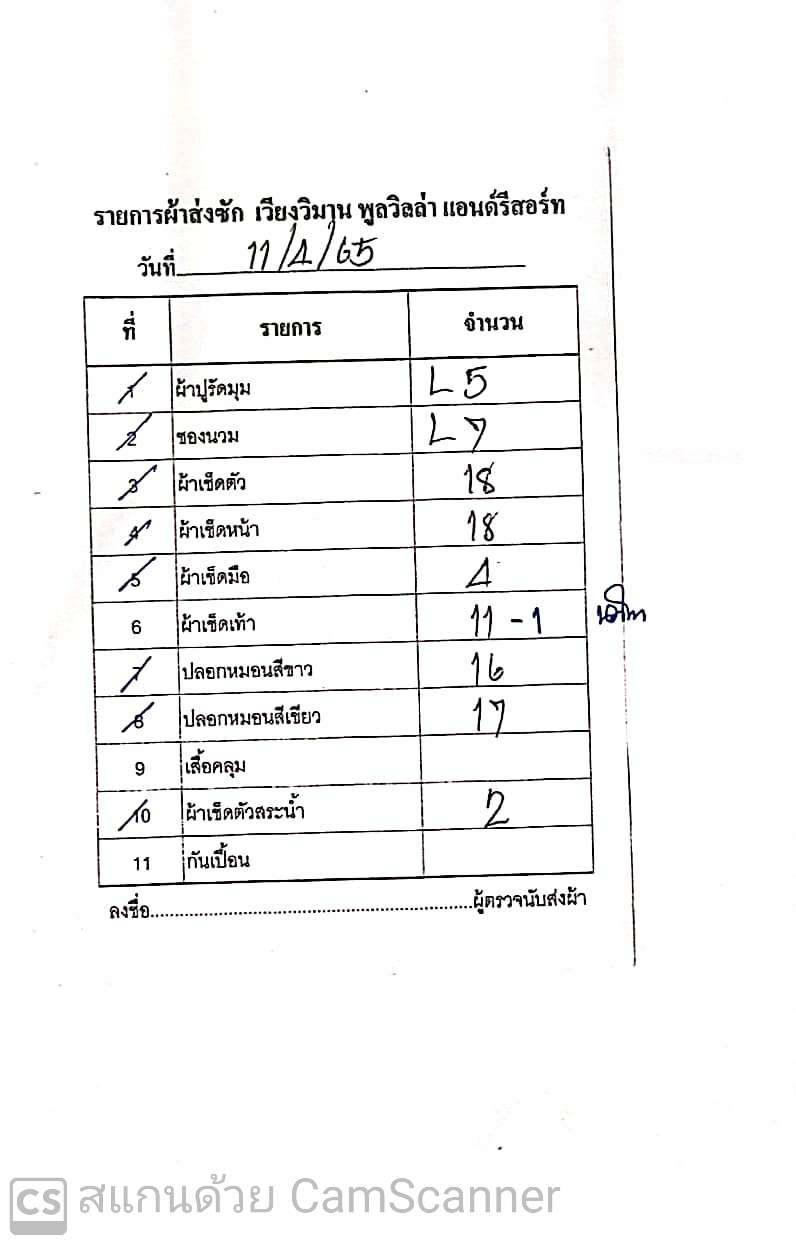 รายการผ้าส่งซัก เวียงวิมาน พูลวิลล่า แอนด์รีสอร์ท
วันที่ 11/4/65
ที่ รายการ จำนวน
1 ผ้าปูรัดมุม L 5
2 ซองนวม L 7
3 ผ้าเช็ดตัว 18
4 ผ้าเช็ดหน้า 18
5 ผ้าเช็ดมือ 4
6 ผ้าเช็ดเท้า 11 - 1
7 ปลอกหมอนสีขาว 16
8 ปลอกหมอนสีเขียว 17
9 เสื้อคลุม
10 ผ้าเช็ดตัวสระน้ำ 2
11 กันเปื้อน
ลงชื่อ........................................................ผู้ตรวจนับส่งผ้า
CS สแกนด้วย CamScanner